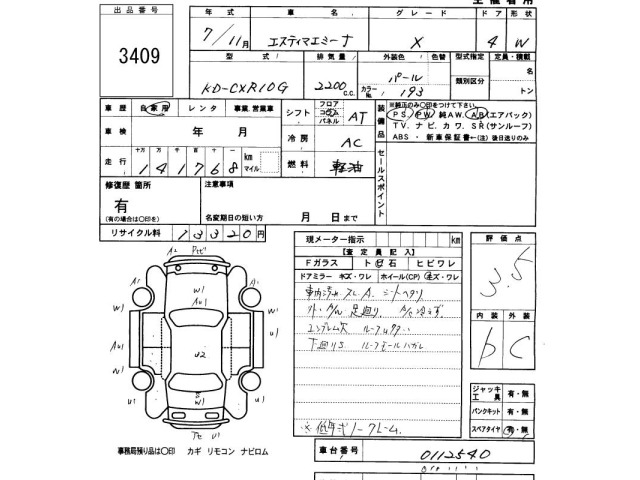 出品番号
3409
年式
車名
グレード
ドア 形状
7/11月
エスティマエミーナ
X
4 W
型式
排気量
外装色 色替
型式指定
定員・積載
KD-CXR10G
2200 c.c.
パール
カラーNo. 193
類別区分
名
トン
車歴
自家用
レンタ
事業.営業車
シフト
フロア
コラム
パネル
AT
装備品
※純正のみ〇印をつけて下さい。
PS PW 純AW. AB(エアバック)
TV. ナビ. カワ. SR(サンルーフ)
ABS ・ 新車保証書←(注)後日送りのみ
車検
年 月
冷房
AC
走行
十万 万 千 百 十
1 4 1 7 6 8
km
マイル
燃料
軽油
セールスポイント
修復歴 箇所
有
(有の場合は〇印を)
注意事項
名変期日の短い方 月 日まで
リサイクル料
13320円
現メーター指示
km
【査定員記入】
Fガラス
ト 石
ヒビワレ
ドアミラー キズ・ワレ
ホイール(CP) キズ・ワレ
評価点
3.5
内装
外装
b
C
エンブレム欠
下廻りS
ルーフモールハガレ
A2
A1
W1
W1
AU1
U2
AU1
W1
W1
U1
U1
ジャッキ
工具
有・無
パンクキット
有・無
スペアタイヤ
有・無
事務局預り品は〇印 カギ リモコン ナビロム
車台番号
0112540